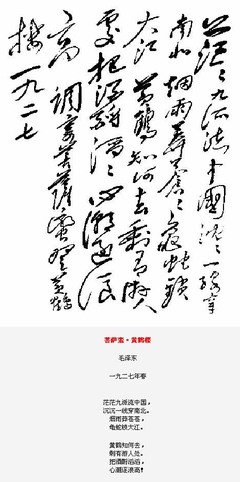 茫々九派流中國沈々一線穿
南北烟雨莽蒼々龜蛇鎖
大江黄鶴知何去剩有游人
處把酒酹滔々心潮逐浪
高調寄菩薩蠻登黄鶴
樓一九二七
菩萨蛮·黄鹤楼
毛泽东
一九二七年春
茫茫九派流中国，
沉沉一线穿南北。
烟雨莽苍苍，
龟蛇锁大江。
黄鹤知何去，
剩有游人处。
把酒酹滔滔，
心潮逐浪高！